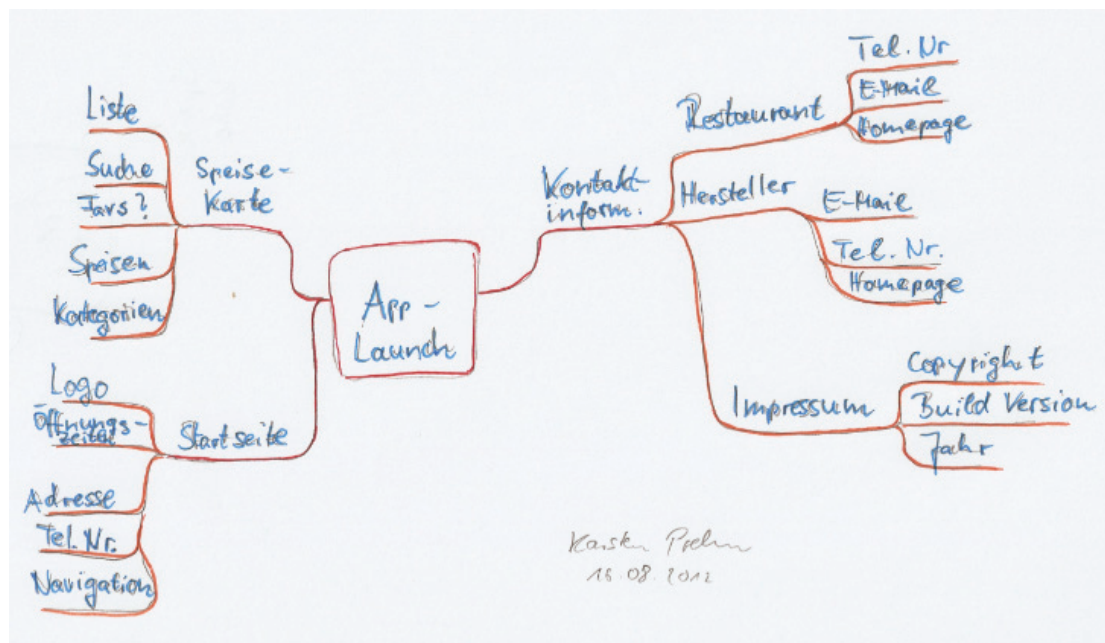 App -
Launch
Speise-
Karte
Liste
Suche
Favs?
Speisen
Kategorien
Startseite
Logo
Öffnungs-
zeiten
Adresse
Tel. Nr.
Navigation
Kontakt-
inform.
Restaurant
Tel. Nr
E-Mail
Homepage
Hersteller
E-Mail
Tel. Nr.
Homepage
Impressum
Copyright
Build Version
Jahr
Karsten
08.2012